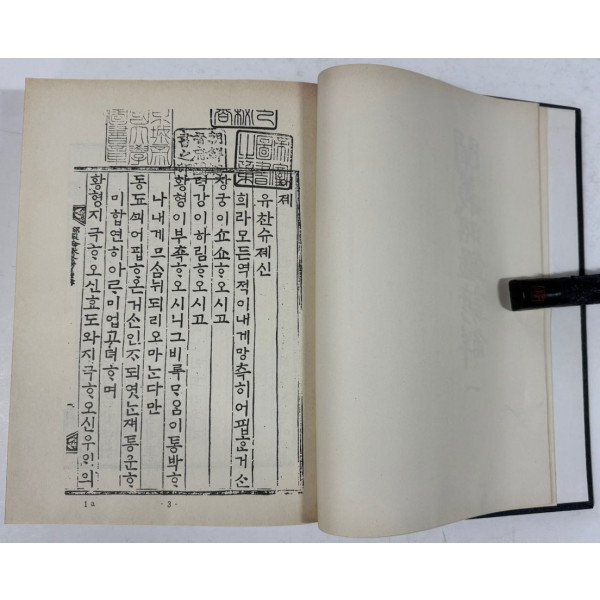 졔
유찬슈졔신
희라모든역적이내게망측히어핍ᄒᆞᆫ거슨
창궁이쇼쇼ᄒᆞ오시고
쳑강이하림ᄒᆞ오시고
황형이부촉ᄒᆞ오시니그비록ᄆᆞ음이통박ᄒᆞ
나내게므ᄉᆞᆷ뉘되리오마ᄂᆞᆫ다만
동도ᄭᅴ어핍ᄒᆞ온거ᄉᆞᆫ인ᄌᆞ되엿ᄂᆞᆫ쟤통운ᄒᆞ
미합연히아ᄅᆞ미업
황형지극ᄒᆞ오신효도와지극ᄒᆞ오신우ᄋᆡ의
1a
- 3 -